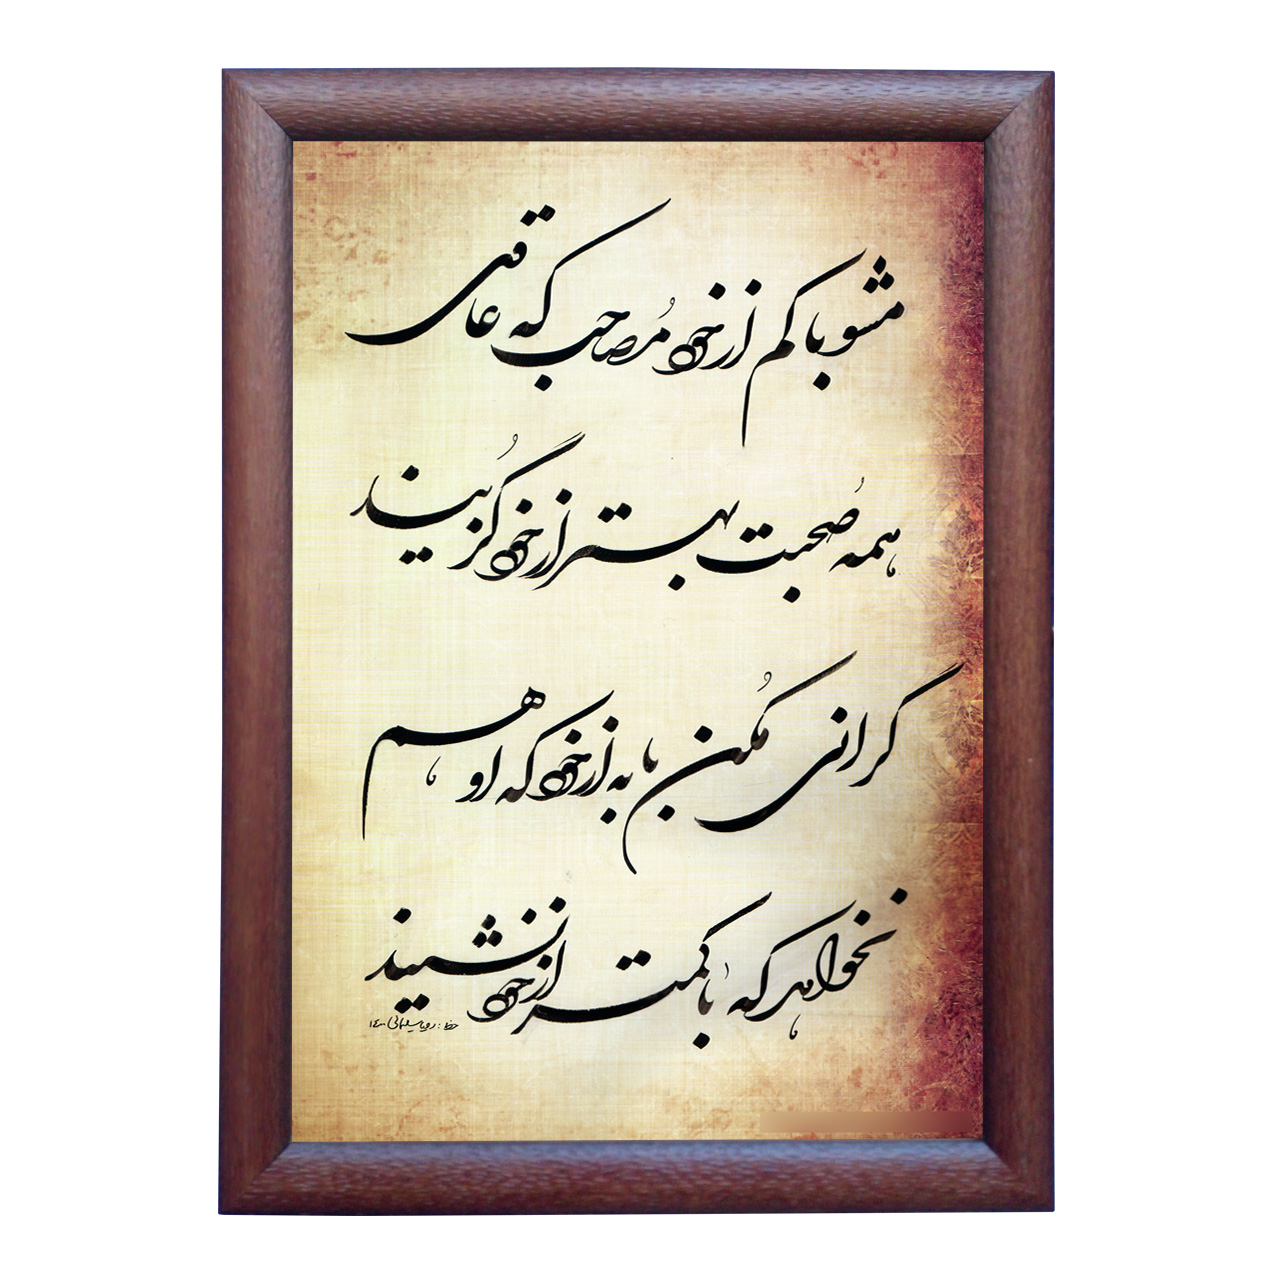 مشو با کم از خود مُصاحب که عاقل
همه صُحبت بهتر از خود گُزیند
گرانی مکُن با به از خود که او هم
نخواهد که با کمتر از خود نشیند
خط: رویا سلیمانی ۱۴۰۰